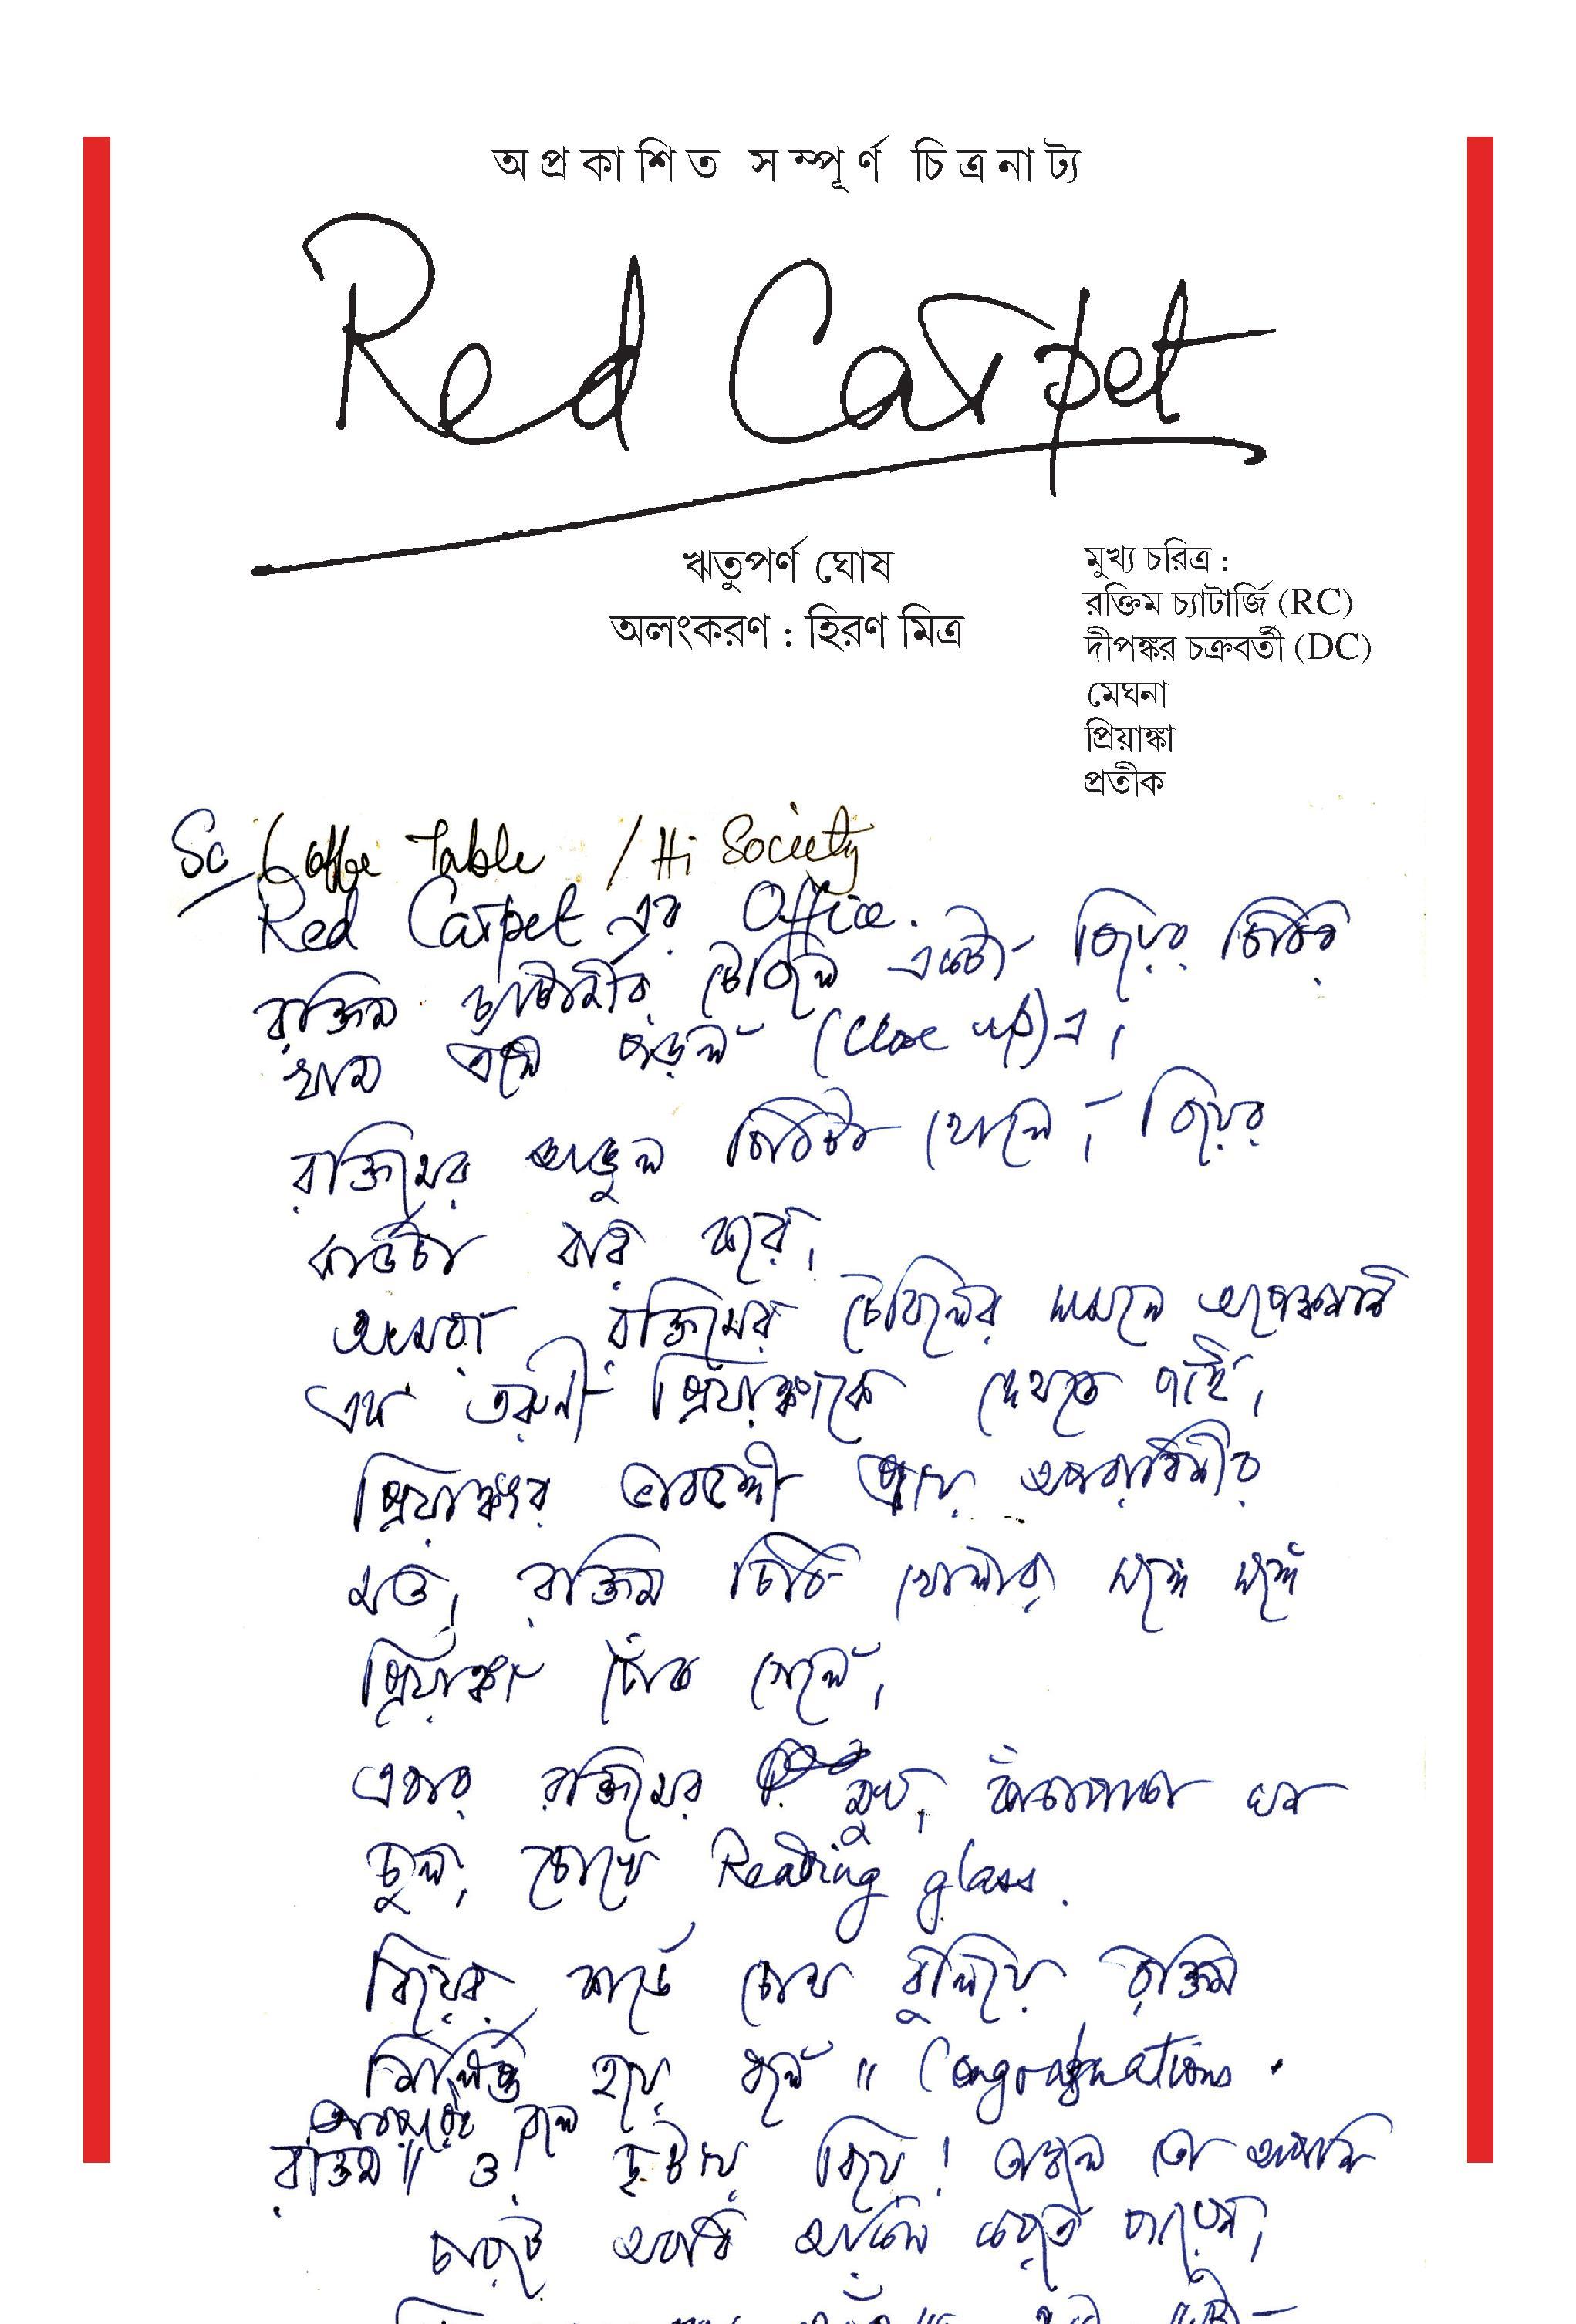 অপ্রকাশিত সম্পূর্ণ চিত্রনাট্য
Red Carpet
ঋতুপর্ণ ঘোষ
অলংকরণ : হিরণ মিত্র
মুখ্য চরিত্র :
রক্তিম চ্যাটার্জি (RC)
দীপঙ্কর চক্রবর্তী (DC)
মেঘনা
প্রিয়াঙ্কা
প্রতীক
Sc / Coffee Table / Hi Society
Red Carpet এর Office.
রক্তিম চ্যাটার্জীর টেবিলে একটা বিয়ের চিঠির
খাম এসে পড়ল (Close up) এ।
রক্তিমের আঙুল চিঠিটা খোলে, বিয়ের
কার্ডটা বার করে।
আমরা রক্তিমের টেবিলের সামনে অপেক্ষমান
এক তরুণী প্রিয়াঙ্কাকে দেখতে পাই।
প্রিয়াঙ্কার ভাবভঙ্গী প্রায় অপরাধিনীর
মত। রক্তিম চিঠি খোলার সঙ্গে সঙ্গে
প্রিয়াঙ্কা ঢোঁক গেলে।
এবার রক্তিমের মুখ। কাঁচাপাকা ঘন
চুল, চোখে Reading glass.
বিয়ের কার্ডে চোখ বুলিয়ে রক্তিম
নির্লিপ্ত হয়ে বলে " Congratulations.
বলে
রক্তিম " ও, ছ'টায় বিয়ে! তাহলে তো আপনি
চারটে অবধি অফিস করতে পারেন।